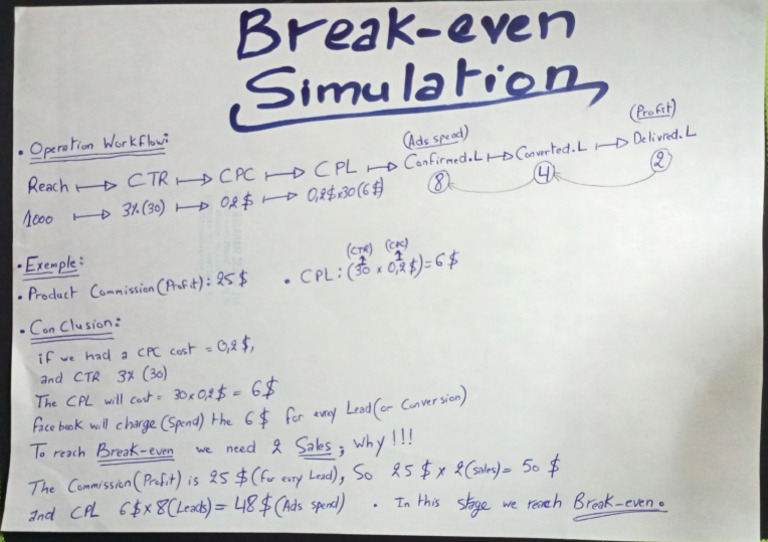 Break-even
Simulation
• Operation Workflow:
(Ads spend)
(Profit)
Reach → CTR → CPC → CPL → Confirmed.L → Converted.L → Delivred.L
8 4 2
1000 → 3%(30) → 0,2$ → 0,2$x30(6$)
• Exemple:
• Product Commission(Profit): 25$
(CTR) (CPC)
• CPL: (30 x 0,2$)=6$
• Conclusion:
if we had a CPC cost = 0,2$,
and CTR 3% (30)
The CPL will cost= 30x0,2$ = 6$
Facebook will charge (Spend) the 6$ for evry Lead(or Conversion)
To reach Break-even we need 2 Sales; why!!!
The Commission(Profit) is 25$(for evry Lead), So 25$ x 2(sales)= 50$
and CPL 6$x8(Leads)= 48$(Ads spend) • In this stage we reach Break-even.